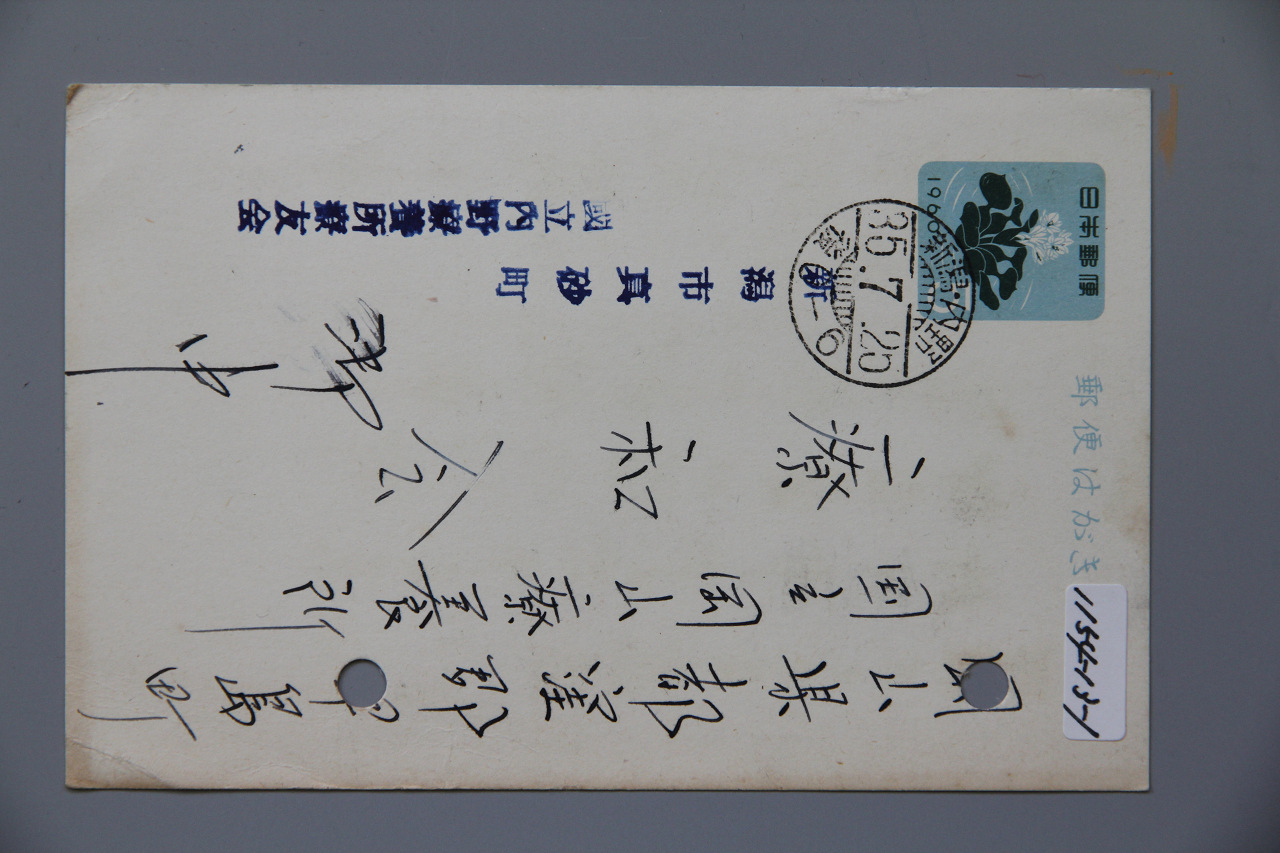 日本郵便
1960
郵便はがき
新潟・内野
35.7.25
後0-6
岡山県都窪郡早島町
国立岡山療養所
療和会
御中
新潟市真砂町
國立内野療養所療友会
1154-13-1